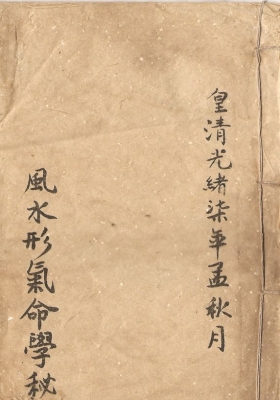 皇清光緒柒年孟秋月
風水形氣命學秘